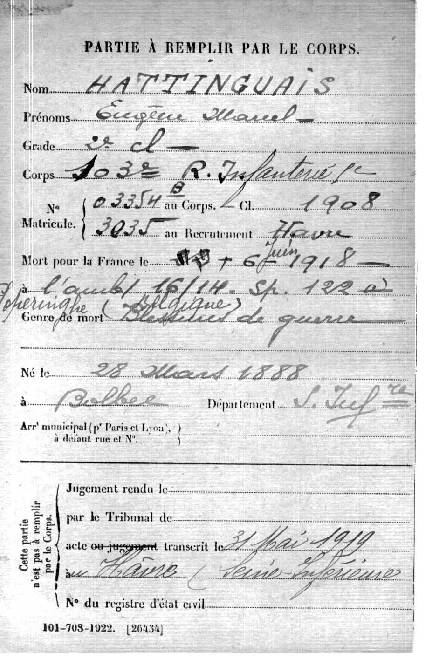 PARTIE À REMPLIR PAR LE CORPS.
Nom HATTINGUAIS
Prénoms Eugène Marcel
Grade 2e cl
Corps 103e R. Infanterie
N° Matricule. { 03354 B au Corps. Cl. 1908
3035 au Recrutement Havre
Mort pour la France le + 6 juin 1918
à l'ambce 16/14. Sp. 122 à
Poperinghe (Belgique)
Genre de mort Blessures de guerre
Né le 28 Mars 1888
à Bolbec Département S. Infre
Arrt municipal (pr Paris et Lyon), à défaut rue et N°.
Cette partie n'est pas à remplir par le Corps.
Jugement rendu le
par le Tribunal de
acte ou jugement transcrit le 31 Mai 1919
au Hâvre (Seine-Inférieure
N° du registre d'état civil
101-708-1922. [26434]